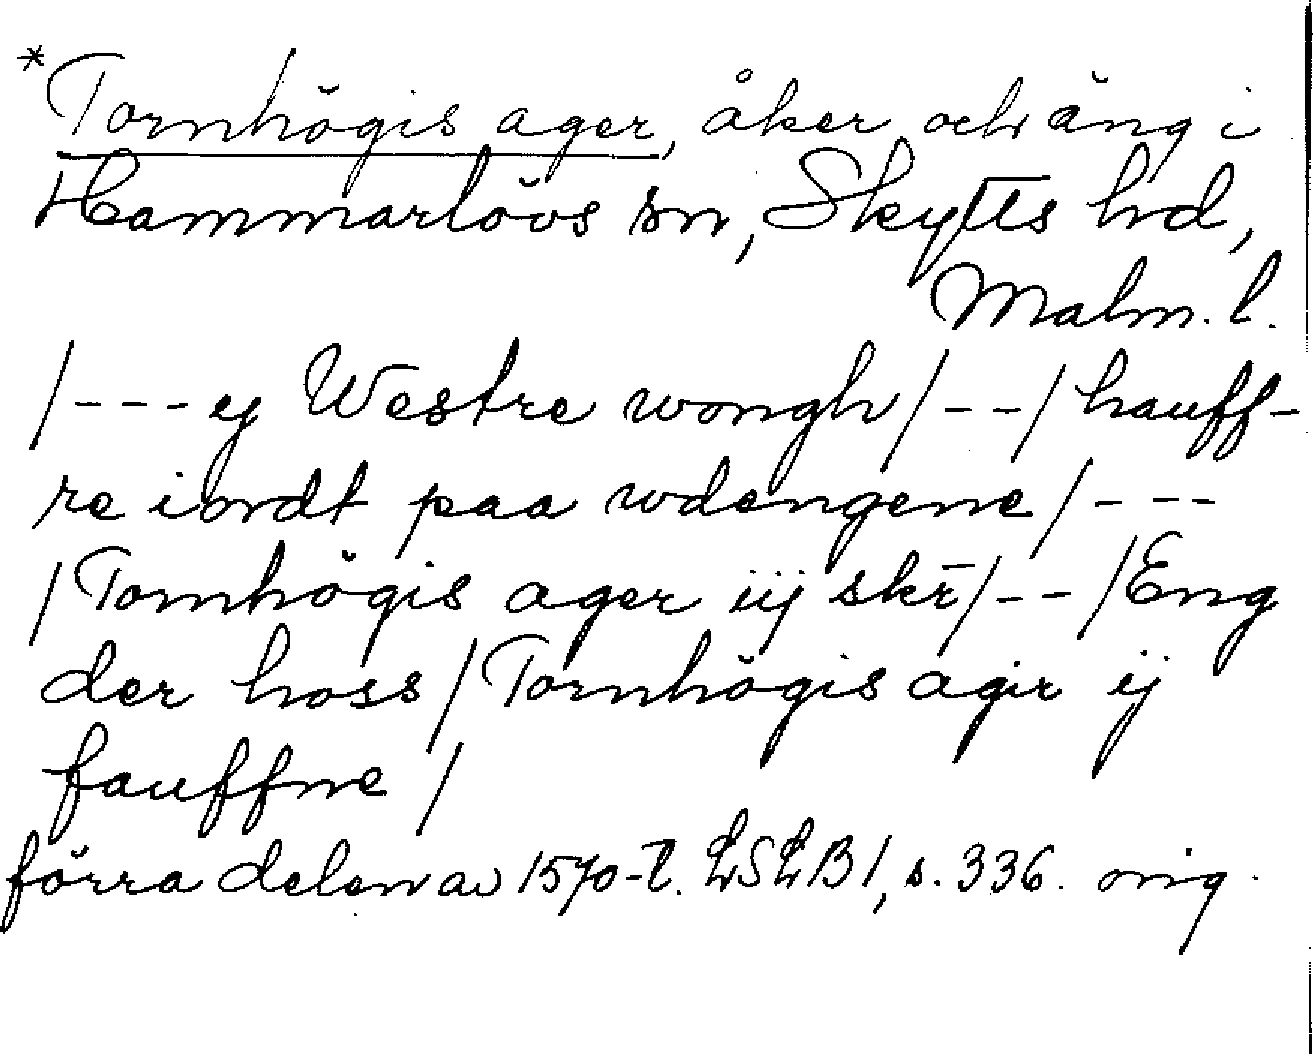 *Tornhögis ager, åker och äng i
Hammarlövs sn, Skytts hd,
Malm. l.
/---ij Westre wongh/--/hauff-
re iordt paa wdengene/---
/Tornhögis ager iij skr̄/--/Eng
der hoss/Tornhögis agir ij
fauffne/
förra delen av 1570-t. LSLB1, s. 336. orig.